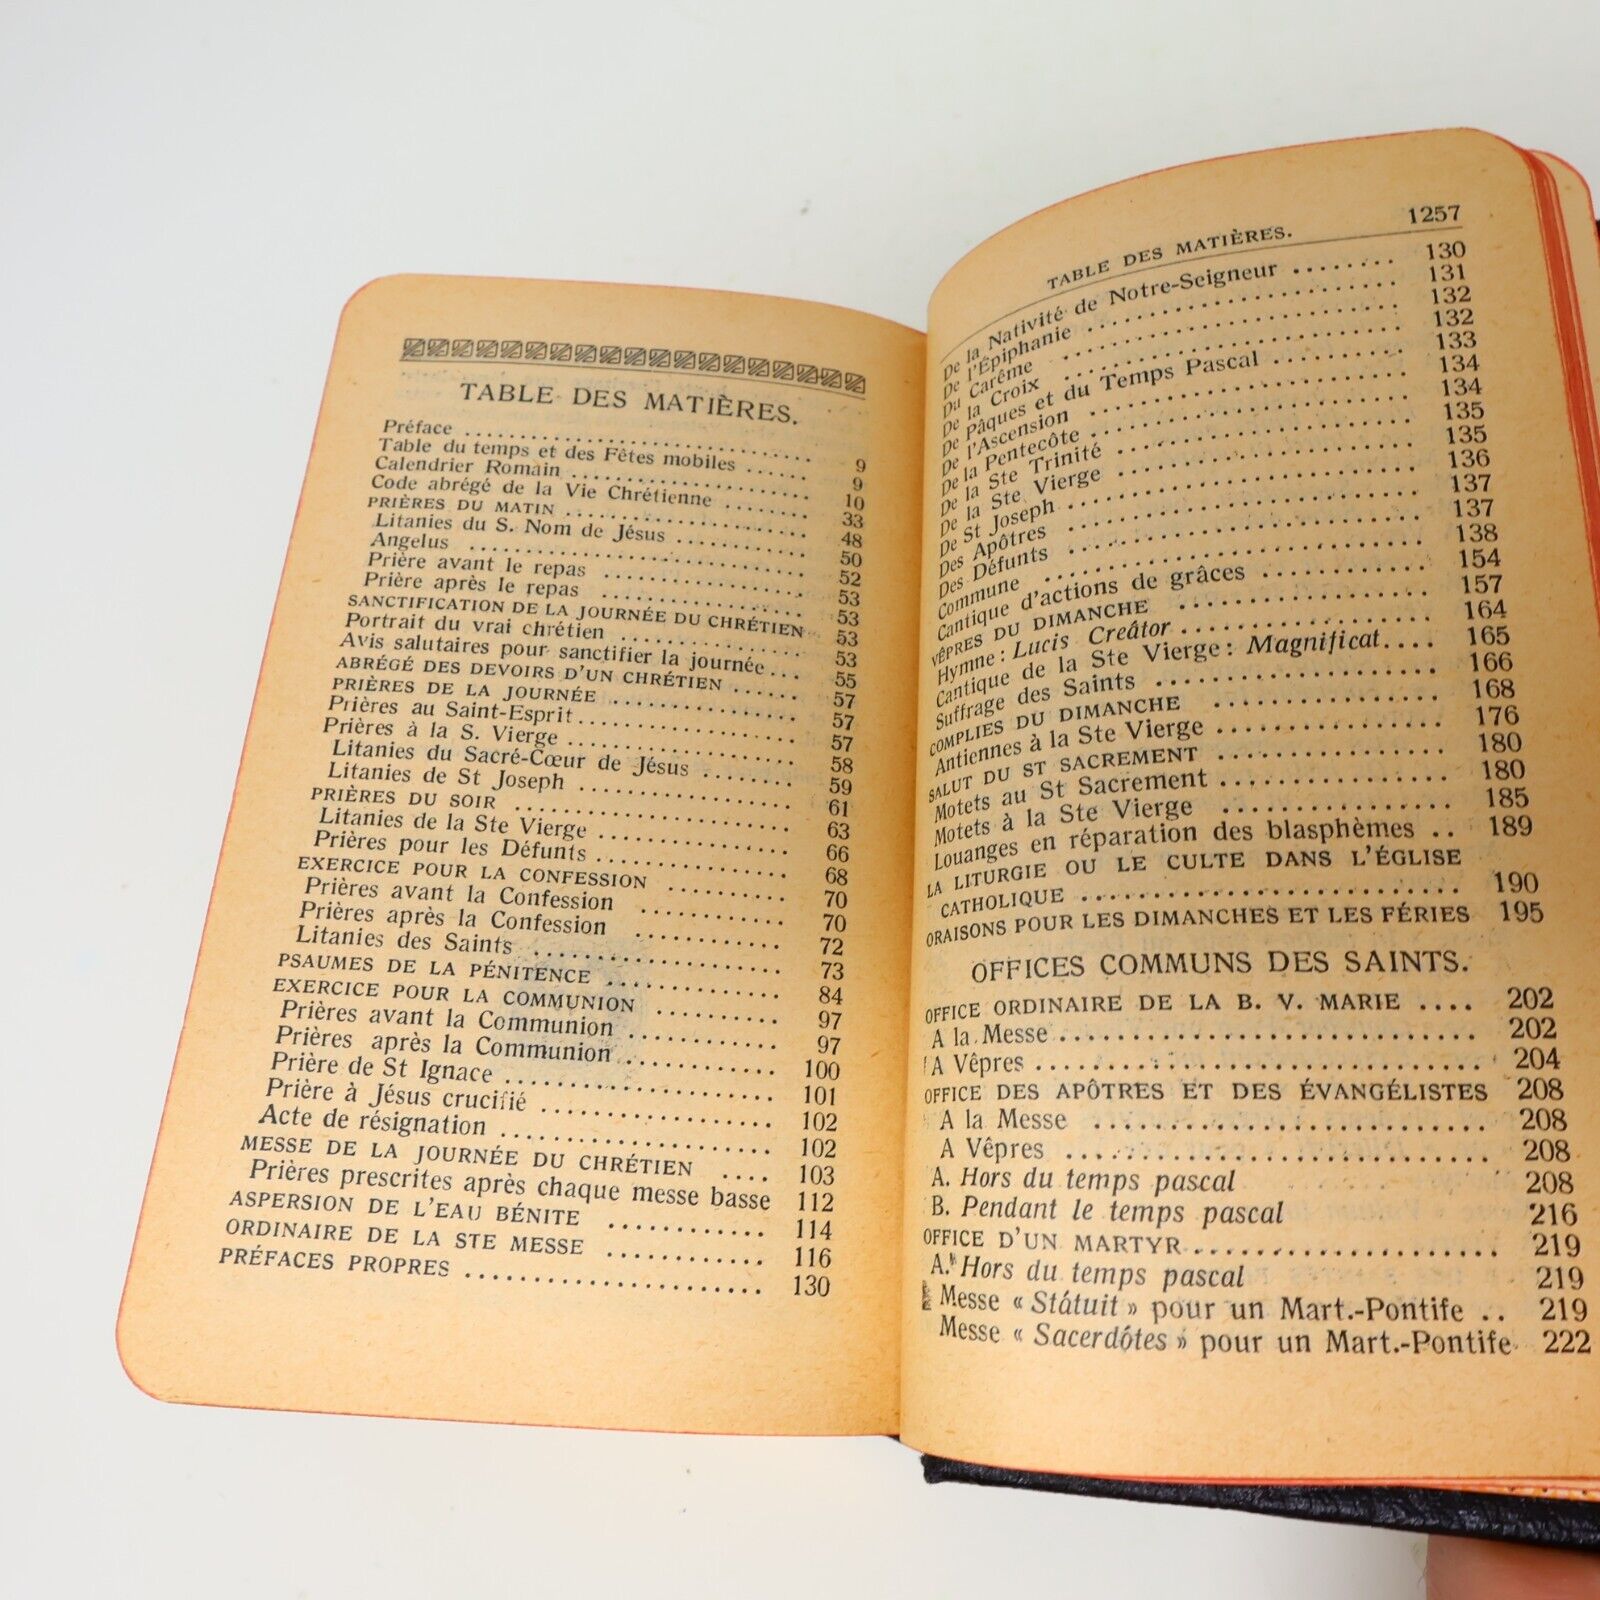 TABLE DES MATIÈRES.
Préface .......... 9
Table du temps et des Fêtes mobiles ...... 9
Calendrier Romain .......... 10
Code abrégé de la Vie Chrétienne ........ 33
PRIÈRES DU MATIN .......... 48
Litanies du S. Nom de Jésus .......... 50
Angelus .......... 52
Prière avant le repas .......... 53
Prière après le repas .......... 53
SANCTIFICATION DE LA JOURNÉE DU CHRÉTIEN 53
Portrait du vrai chrétien .......... 53
Avis salutaires pour sanctifier la journée... 55
ABRÉGÉ DES DEVOIRS D'UN CHRÉTIEN ...... 57
PRIÈRES DE LA JOURNÉE .......... 57
Prières au Saint-Esprit .......... 57
Prières à la S. Vierge .......... 58
Litanies du Sacré-Cœur de Jésus ........ 59
Litanies de St Joseph .......... 61
PRIÈRES DU SOIR .......... 63
Litanies de la Ste Vierge .......... 66
Prières pour les Défunts .......... 68
EXERCICE POUR LA CONFESSION ........ 70
Prières avant la Confession .......... 70
Prières après la Confession .......... 72
Litanies des Saints .......... 73
PSAUMES DE LA PÉNITENCE .......... 84
EXERCICE POUR LA COMMUNION ......... 97
Prières avant la Communion .......... 97
Prières après la Communion .......... 100
Prière de St Ignace .......... 101
Prière à Jésus crucifié .......... 102
Acte de résignation .......... 102
MESSE DE LA JOURNÉE DU CHRÉTIEN .... 103
Prières prescrites après chaque messe basse 112
ASPERSION DE L'EAU BÉNITE .......... 114
ORDINAIRE DE LA STE MESSE .......... 116
PRÉFACES PROPRES .......... 130
TABLE DES MATIÈRES. 1257
De la Nativité de Notre-Seigneur ........ 130
De l'Épiphanie .......... 131
Du Carême .......... 132
De la Croix .......... 132
De Pâques et du Temps Pascal .......... 133
De l'Ascension .......... 134
De la Pentecôte .......... 134
De la Ste Trinité .......... 135
De la Ste Vierge .......... 135
De St Joseph .......... 136
Des Apôtres .......... 137
Des Défunts .......... 137
Commune .......... 138
Cantique d'actions de grâces .......... 154
VÊPRES DU DIMANCHE .......... 157
Hymne : Lucis Creátor .......... 164
Cantique de la Ste Vierge : Magnificat.... 165
Suffrage des Saints .......... 166
COMPLIES DU DIMANCHE .......... 168
Antiennes à la Ste Vierge .......... 176
SALUT DU ST SACREMENT .......... 180
Motets au St Sacrement .......... 180
Motets à la Ste Vierge .......... 185
Louanges en réparation des blasphèmes .. 189
LA LITURGIE OU LE CULTE DANS L'ÉGLISE
CATHOLIQUE .......... 190
ORAISONS POUR LES DIMANCHES ET LES FÉRIES 195
OFFICES COMMUNS DES SAINTS.
OFFICE ORDINAIRE DE LA B. V. MARIE .... 202
A la Messe .......... 202
A Vêpres .......... 204
OFFICE DES APÔTRES ET DES ÉVANGÉLISTES 208
A la Messe .......... 208
A Vêpres .......... 208
A. Hors du temps pascal 208
B. Pendant le temps pascal 216
OFFICE D'UN MARTYR .......... 219
A. Hors du temps pascal 219
Messe « Státuit » pour un Mart.-Pontife .. 219
Messe « Sacerdótes » pour un Mart.-Pontife 222